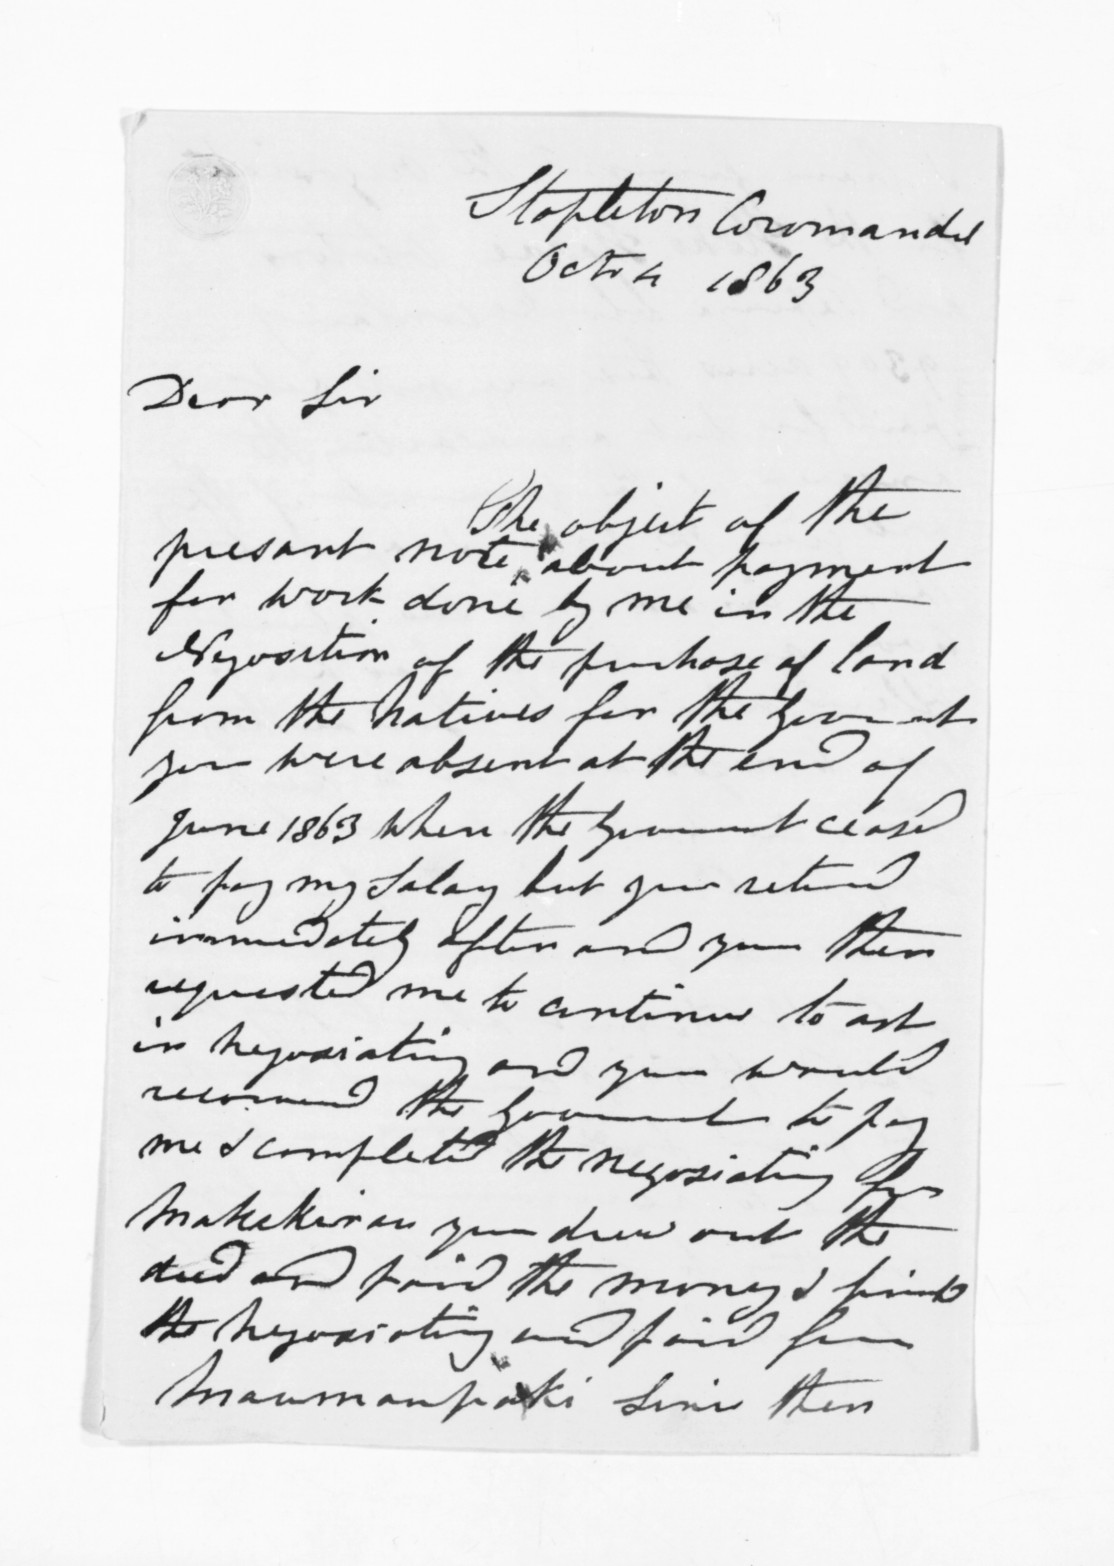 Stapleton Coromandel
Octr 4 1863
Dear Sir
The object of the
presant note about payment
for work done by me in the
Negosition of the purchase of land
from the Natives for the Goverment
you were absent at the end of
June 1863 when the Goverment ceased
to pay my Salary but you returnd
immediately after and you then
requested me to continue to act
in Negosiating and you would
recomend the Goverment to pay
me I completed the negosiating for
you drew out the
deed and paid the money I finishd
the Negosiating and paid for
Maumaupaki Since then